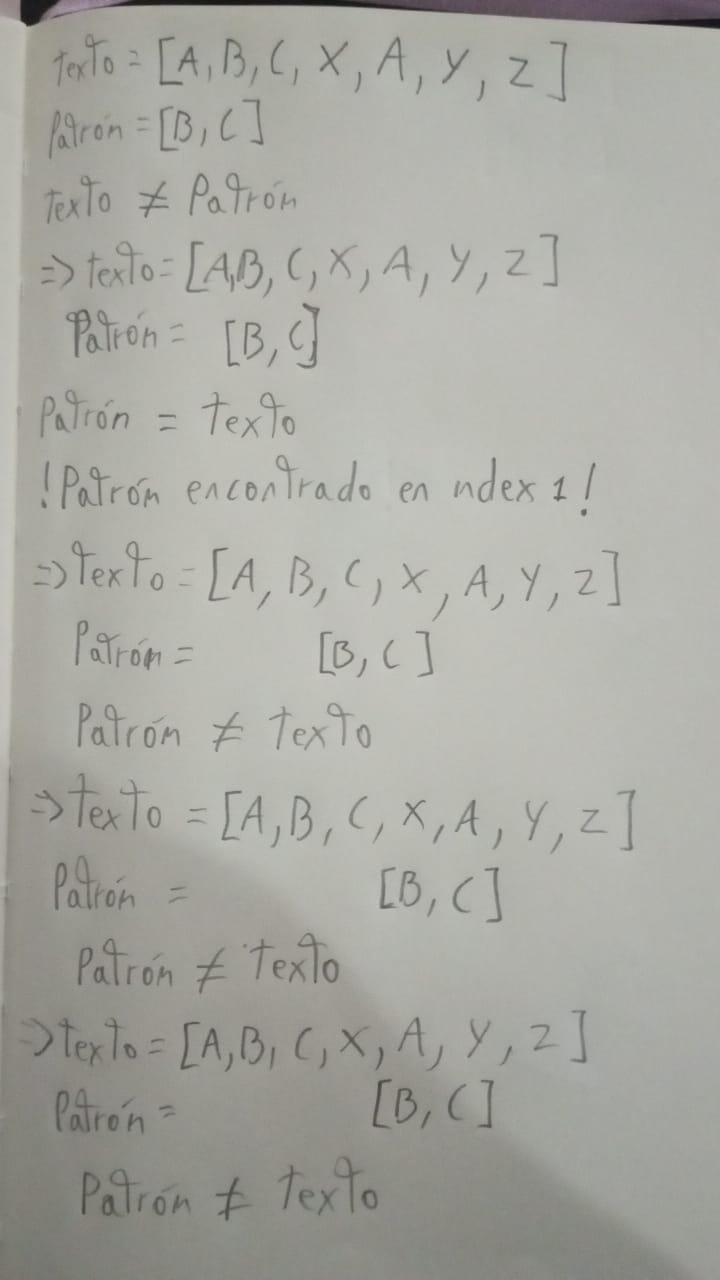 texto = [A, B, C, X, A, Y, Z]
Patrón = [B, C]
texto ≠ Patrón
=> texto = [A,B, C, X, A, Y, Z]
Patrón = [B, C]
Patrón = texto
!Patrón encontrado en ndex 1!
=> texto = [A, B, C, X, A, Y, Z]
Patrón = [B, C]
Patrón ≠ texto
=> texto = [A, B, C, X, A, Y, Z]
Patrón = [B, C]
Patrón ≠ texto
=> texto = [A, B, C, X, A, Y, Z]
Patrón = [B, C]
Patrón ≠ texto